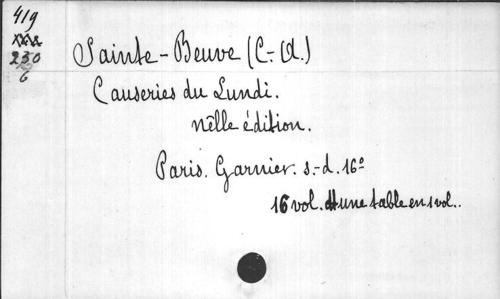 419
230
6
Sainte-Beuve (C.-A.)
Causeries du Lundi.
nelle édition.
Paris. Garnier. s.-d. 16°
16 vol. et une table en 1 vol..